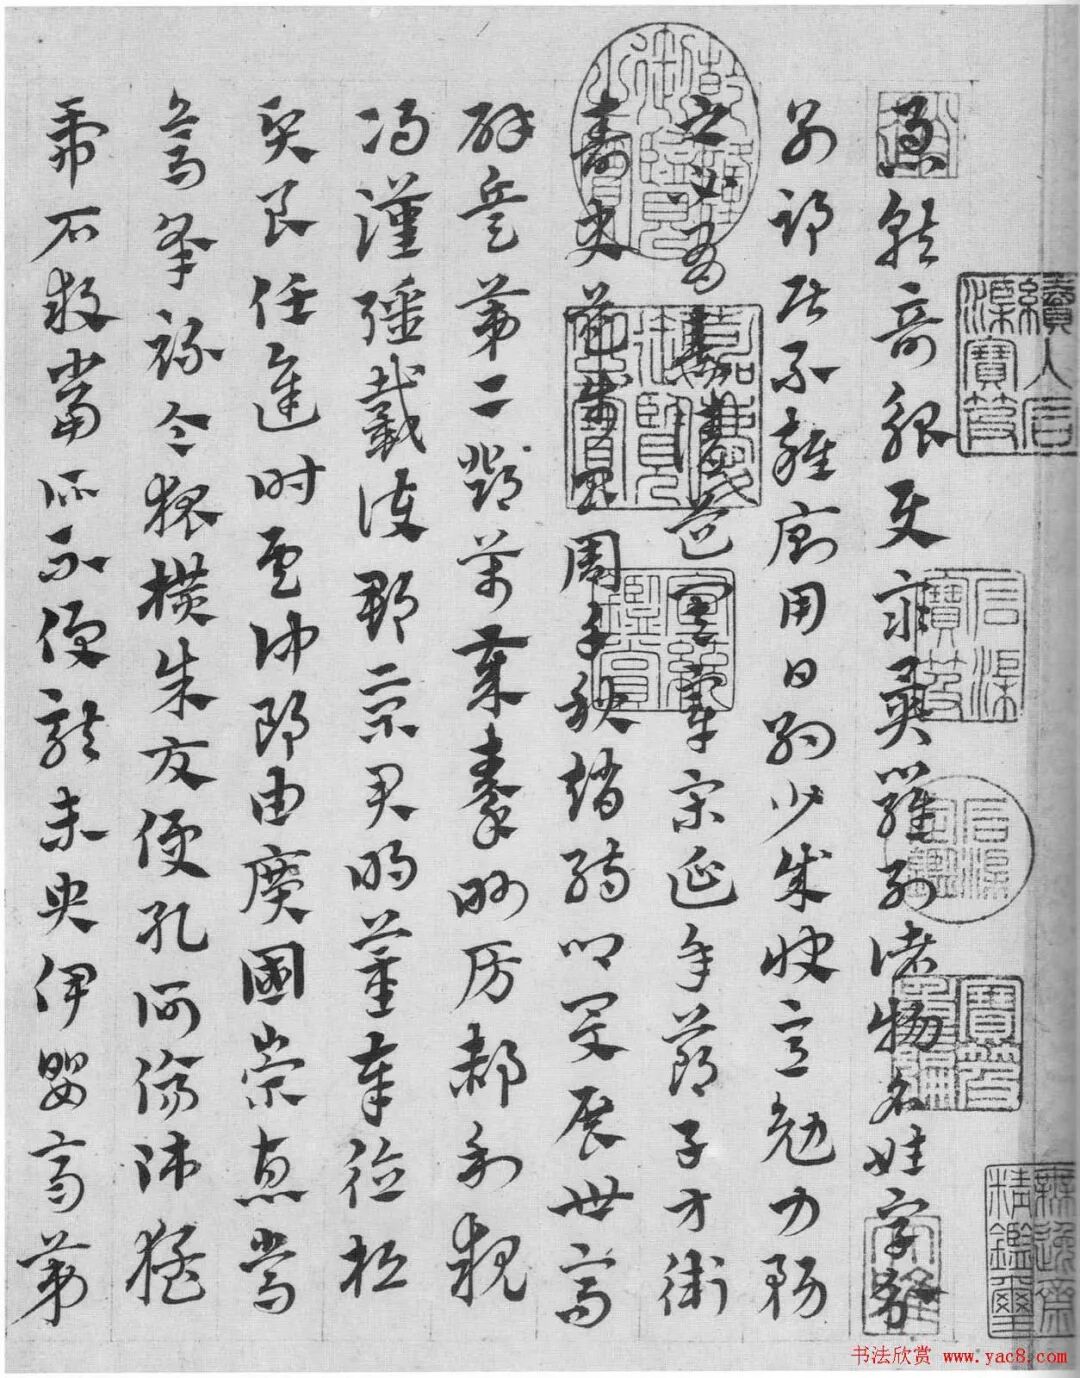 急就奇觚與衆異羅列諸物名姓字分
別部居不雜廁用日約少成快意勉力務
之必有憙請道其章宋延年鄭子方衛
壽史步昌周千秋趙孺卿爰展世高
辟兵第二鄧萬歲秦眇房郝利親
馮漢彊戴護郡景君明董奉德桓
賢良任逢時侯仲郎由廣國榮惠常
烏承祿令狐橫朱交便孔何傷師猛
虎石敢當所不侵龍未央伊嬰齊第
嘉慶御覽之寶
寶笈重編
无逸齋精鑑璽
书法欣赏 www.yac8.com